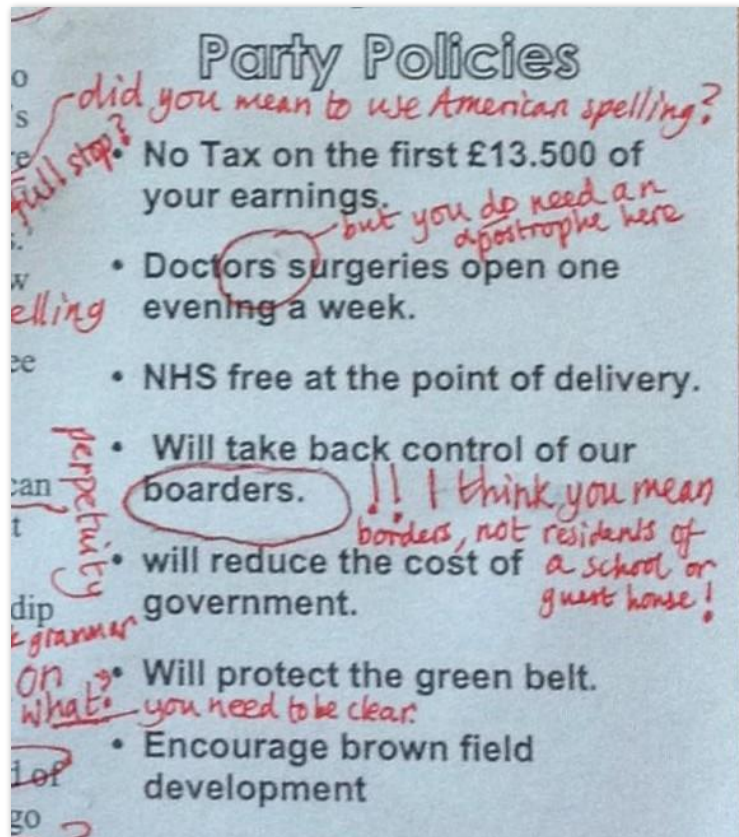 Party Policies
o
did you mean to use American spelling?
's
re
full stop?
• No Tax on the first £13.500 of
your earnings.
but you do need an
apostrophe here
s.
w
• Doctors surgeries open one
evening a week.
elling
ee
• NHS free at the point of delivery.
perpetuity
• Will take back control of our
can
boarders.
!! I think you mean
borders, not residents of
a school or
guest house!
t
• will reduce the cost of
government.
dip
grammar
on
what?
• Will protect the green belt.
you need to be clear.
• Encourage brown field
development
d of
go
?